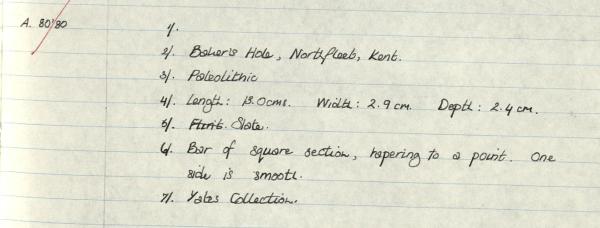 A. 80'80
1).
2). Baker's Hole, Northfleet, Kent.
3). Paleolithic
4). Length: 13.0cms. Width: 2.9 cm. Depth: 2.4 cm.
5). Flint. Slate.
6). Bar of square section, tapering to a point. One
side is smooth.
7). Yates Collection.